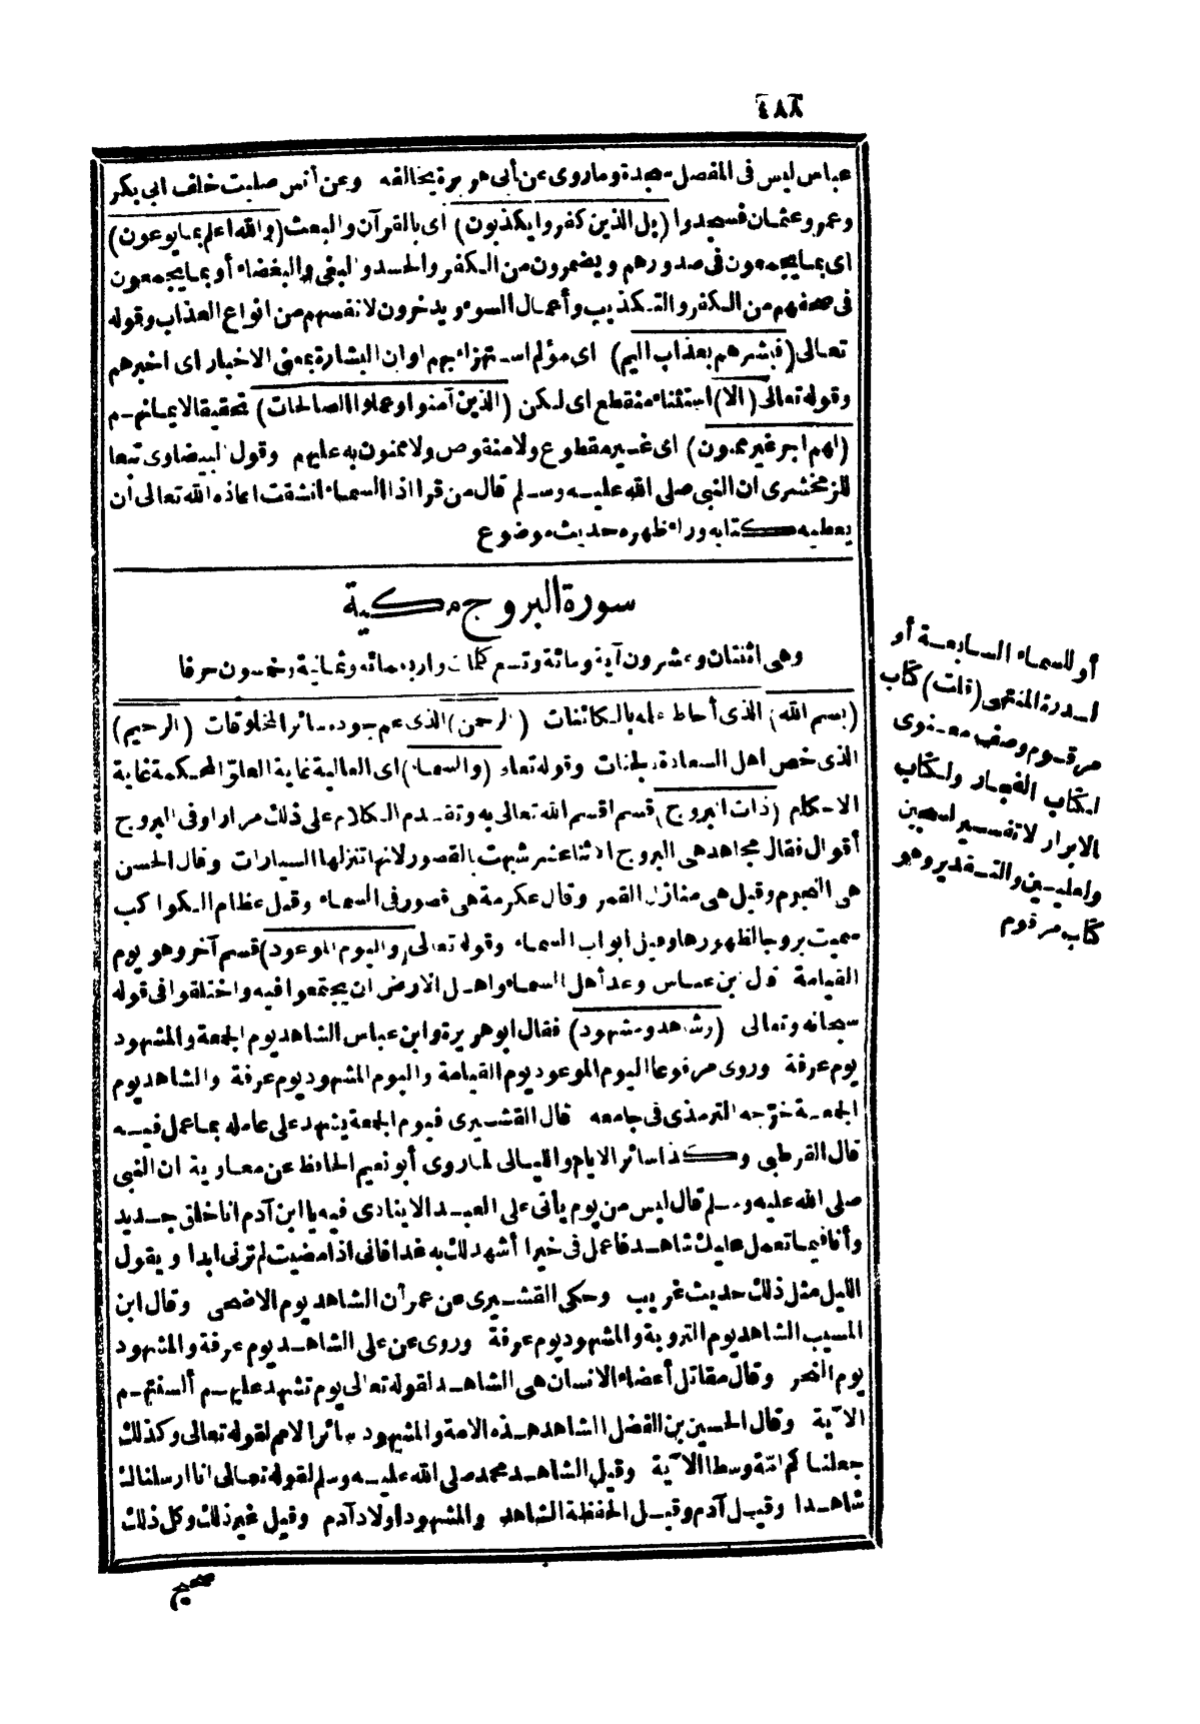 ٤٨٨
عباس ليس فى المفصل سجدة وماروى عن أبى هريرة يخالفه وعن أنس صليت خلف ابى بكر
وعمر وعثمان فسجدوا (بل الذين كفروا يكذبون) اى بالقرآن والبعث (والله اعلم بما يوعون)
اى بما يجمعون فى صدورهم ويضمرون من الكفر والحسد والبغى والبغضاء أو بما يجمعون
فى صحفهم من الكفر والتكذيب وأعمال السوء ويدخرون لانفسهم من انواع العذاب وقوله
تعالى (فبشرهم بعذاب اليم) اى مؤلم استهزاء بهم او ان البشارة بمعنى الاخبار اى اخبرهم
وقوله تعالى (الا) استثناء منقطع اى لكن (الذين آمنوا وعملوا الصالحات) تحقيقا لايمانهم
(لهم اجر غير ممنون) اى غير مقطوع ولا منقوص ولا ممنون به عليهم وقول البيضاوى تبعا
للزمخشرى ان النبى صلى الله عليه وسلم قال من قرا اذا السماء انشقت اعاذه الله تعالى أن
يعطيه كتابه وراء ظهره حديث موضوع
سورة البروج مكية
وهى اثنتان وعشرون آية ومائة وتسع كلمات واربعمائه وثمانية وخمسون حرفا
(بسم الله) الذى أحاط علمه بالكائنات (الرحمن) الذى عم جوده سائر المخلوقات (الرحيم)
الذى خص اهل السعادة بالجنات وقوله تعالى (والسماء) اى العالية غاية العلو المحكمة غاية
الاحكام (ذات البروج) قسم اقسم الله تعالى به وتقدم الكلام على ذلك مرارا وفى البروج
أقوال فقال مجاهد هى البروج الاثنا عشر شبهت بالقصور لانها تنزلها السيارات وقال الحسن
هى النجوم وقيل هى منازل القمر وقال عكرمة هى قصور فى السماء وقيل عظام الكواكب
سميت بروجا لظهورها وقيل ابواب السماء وقوله تعالى (واليوم الموعود) قسم آخر وهو يوم
القيامة قال ابن عباس وعد أهل السماء واهل الارض ان يجتمعوا فيه واختلفوا فى قوله
سبحانه وتعالى (وشاهد ومشهود) فقال ابو هريرة وابن عباس الشاهد يوم الجمعة والمشهود
يوم عرفة وروى مرفوعا اليوم الموعود يوم القيامة واليوم المشهود يوم عرفة والشاهد يوم
الجمعة خرّجه الترمذى فى جامعه قال القشيرى فيوم الجمعة يشهد على عامله بما عمل فيه
قال القرطبى وكذا سائر الايام والليالى لما روى أبو نعيم الحافظ عن معاوية ان النبى
صلى الله عليه وسلم قال ليس من يوم يأتى على العبد الا ينادى فيه يا ابن آدم انا خلق جديد
وأنا فيما تعمل عليك شاهد فاعمل فى خيرا أشهد لك به غدا فانى اذا مضيت لم ترنى ابدا ويقول
الليل مثل ذلك حديث غريب وحكى القشيرى عن عمر أن الشاهد يوم الاضحى وقال ابن
المسيب الشاهد يوم التروية والمشهود يوم عرفة وروى عن على الشاهد يوم عرفة والمشهود
يوم النحر وقال مقاتل أعضاء الانسان هى الشاهد لقوله تعالى يوم تشهد عليهم ألسنتهم
الآية وقال الحسين بن الفضل الشاهد هذه الامة والمشهود سائر الامم لقوله تعالى وكذلك
جعلناكم امّة وسطا الآية وقيل الشاهد محمد صلى الله عليه وسلم لقوله تعالى انا ارسلناك
شاهدا وقيل آدم وقيل الحفظة الشاهد والمشهود اولاد آدم وقيل غير ذلك وكل ذلك
صحيح
أو للسماء السابعة أو
لسدرة المنتهى (قلت) كتاب
مرقوم وصف معنوى
لكتاب الفجار ولكتاب
الابرار لا تفسير لسجين
ولعليين والتقدير وهو
كتاب مرقوم